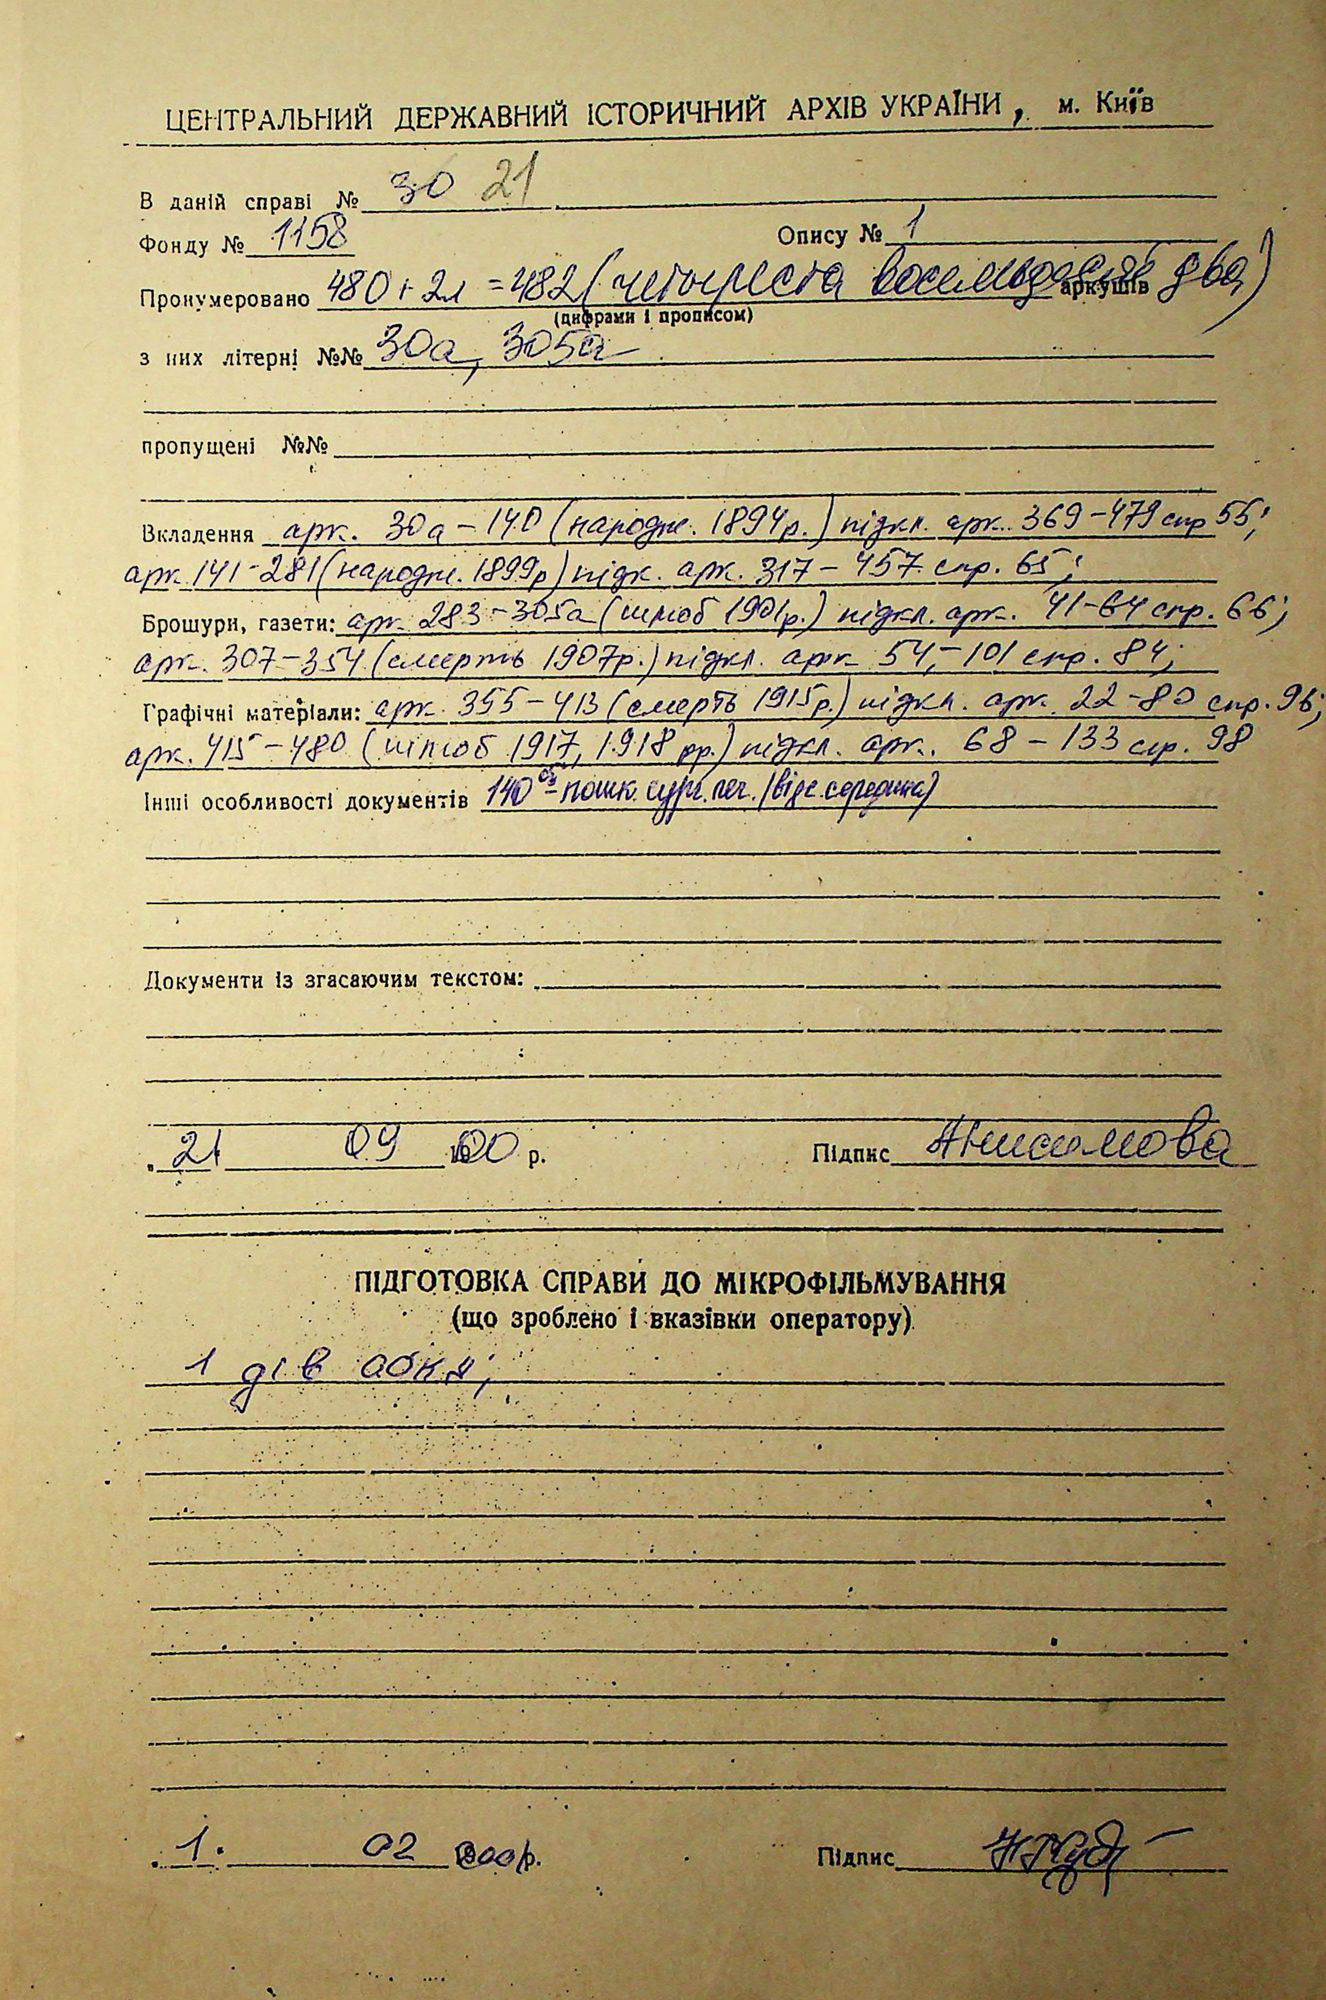 ЦЕНТРАЛЬНИЙ ДЕРЖАВНИЙ ІСТОРИЧНИЙ АРХІВ УКРАЇНИ, м. Київ
В даній справі № 30 21
Фонду № 1158 Опису № 1
Пронумеровано 480+2л=482 (четыреста восемьдесят два) аркушів
(цифрами і прописом)
з них літерні №№ 30а, 305а
пропущені №№
Вкладення арк. 30а-140 (народж. 1894р.) підкл. арк. 369-479 спр 55;
арк. 141-281 (народж. 1899р) підк. арк. 317-457 спр. 65;
Брошури, газети: арк. 283-305а (шлюб 1901р.) підкл. арк. 41-64 спр. 66;
арк. 307-354 (смерть 1907р.) підкл. арк 54-101 спр. 84;
Графічні матеріали: арк. 355-413 (смерть 1915р.) підкл. арк. 22-80 спр. 96;
арк. 415-480 (шлюб 1917, 1918 рр.) підкл. арк. 68-133 спр. 98
Інші особливості документів 140 об - пошк. сург. печ. (відс. середина)
Документи із згасаючим текстом:
21 09 00 р. Підпис Анисимова
ПІДГОТОВКА СПРАВИ ДО МІКРОФІЛЬМУВАННЯ
(що зроблено і вказівки оператору)
1
1. 02 р. Підпис